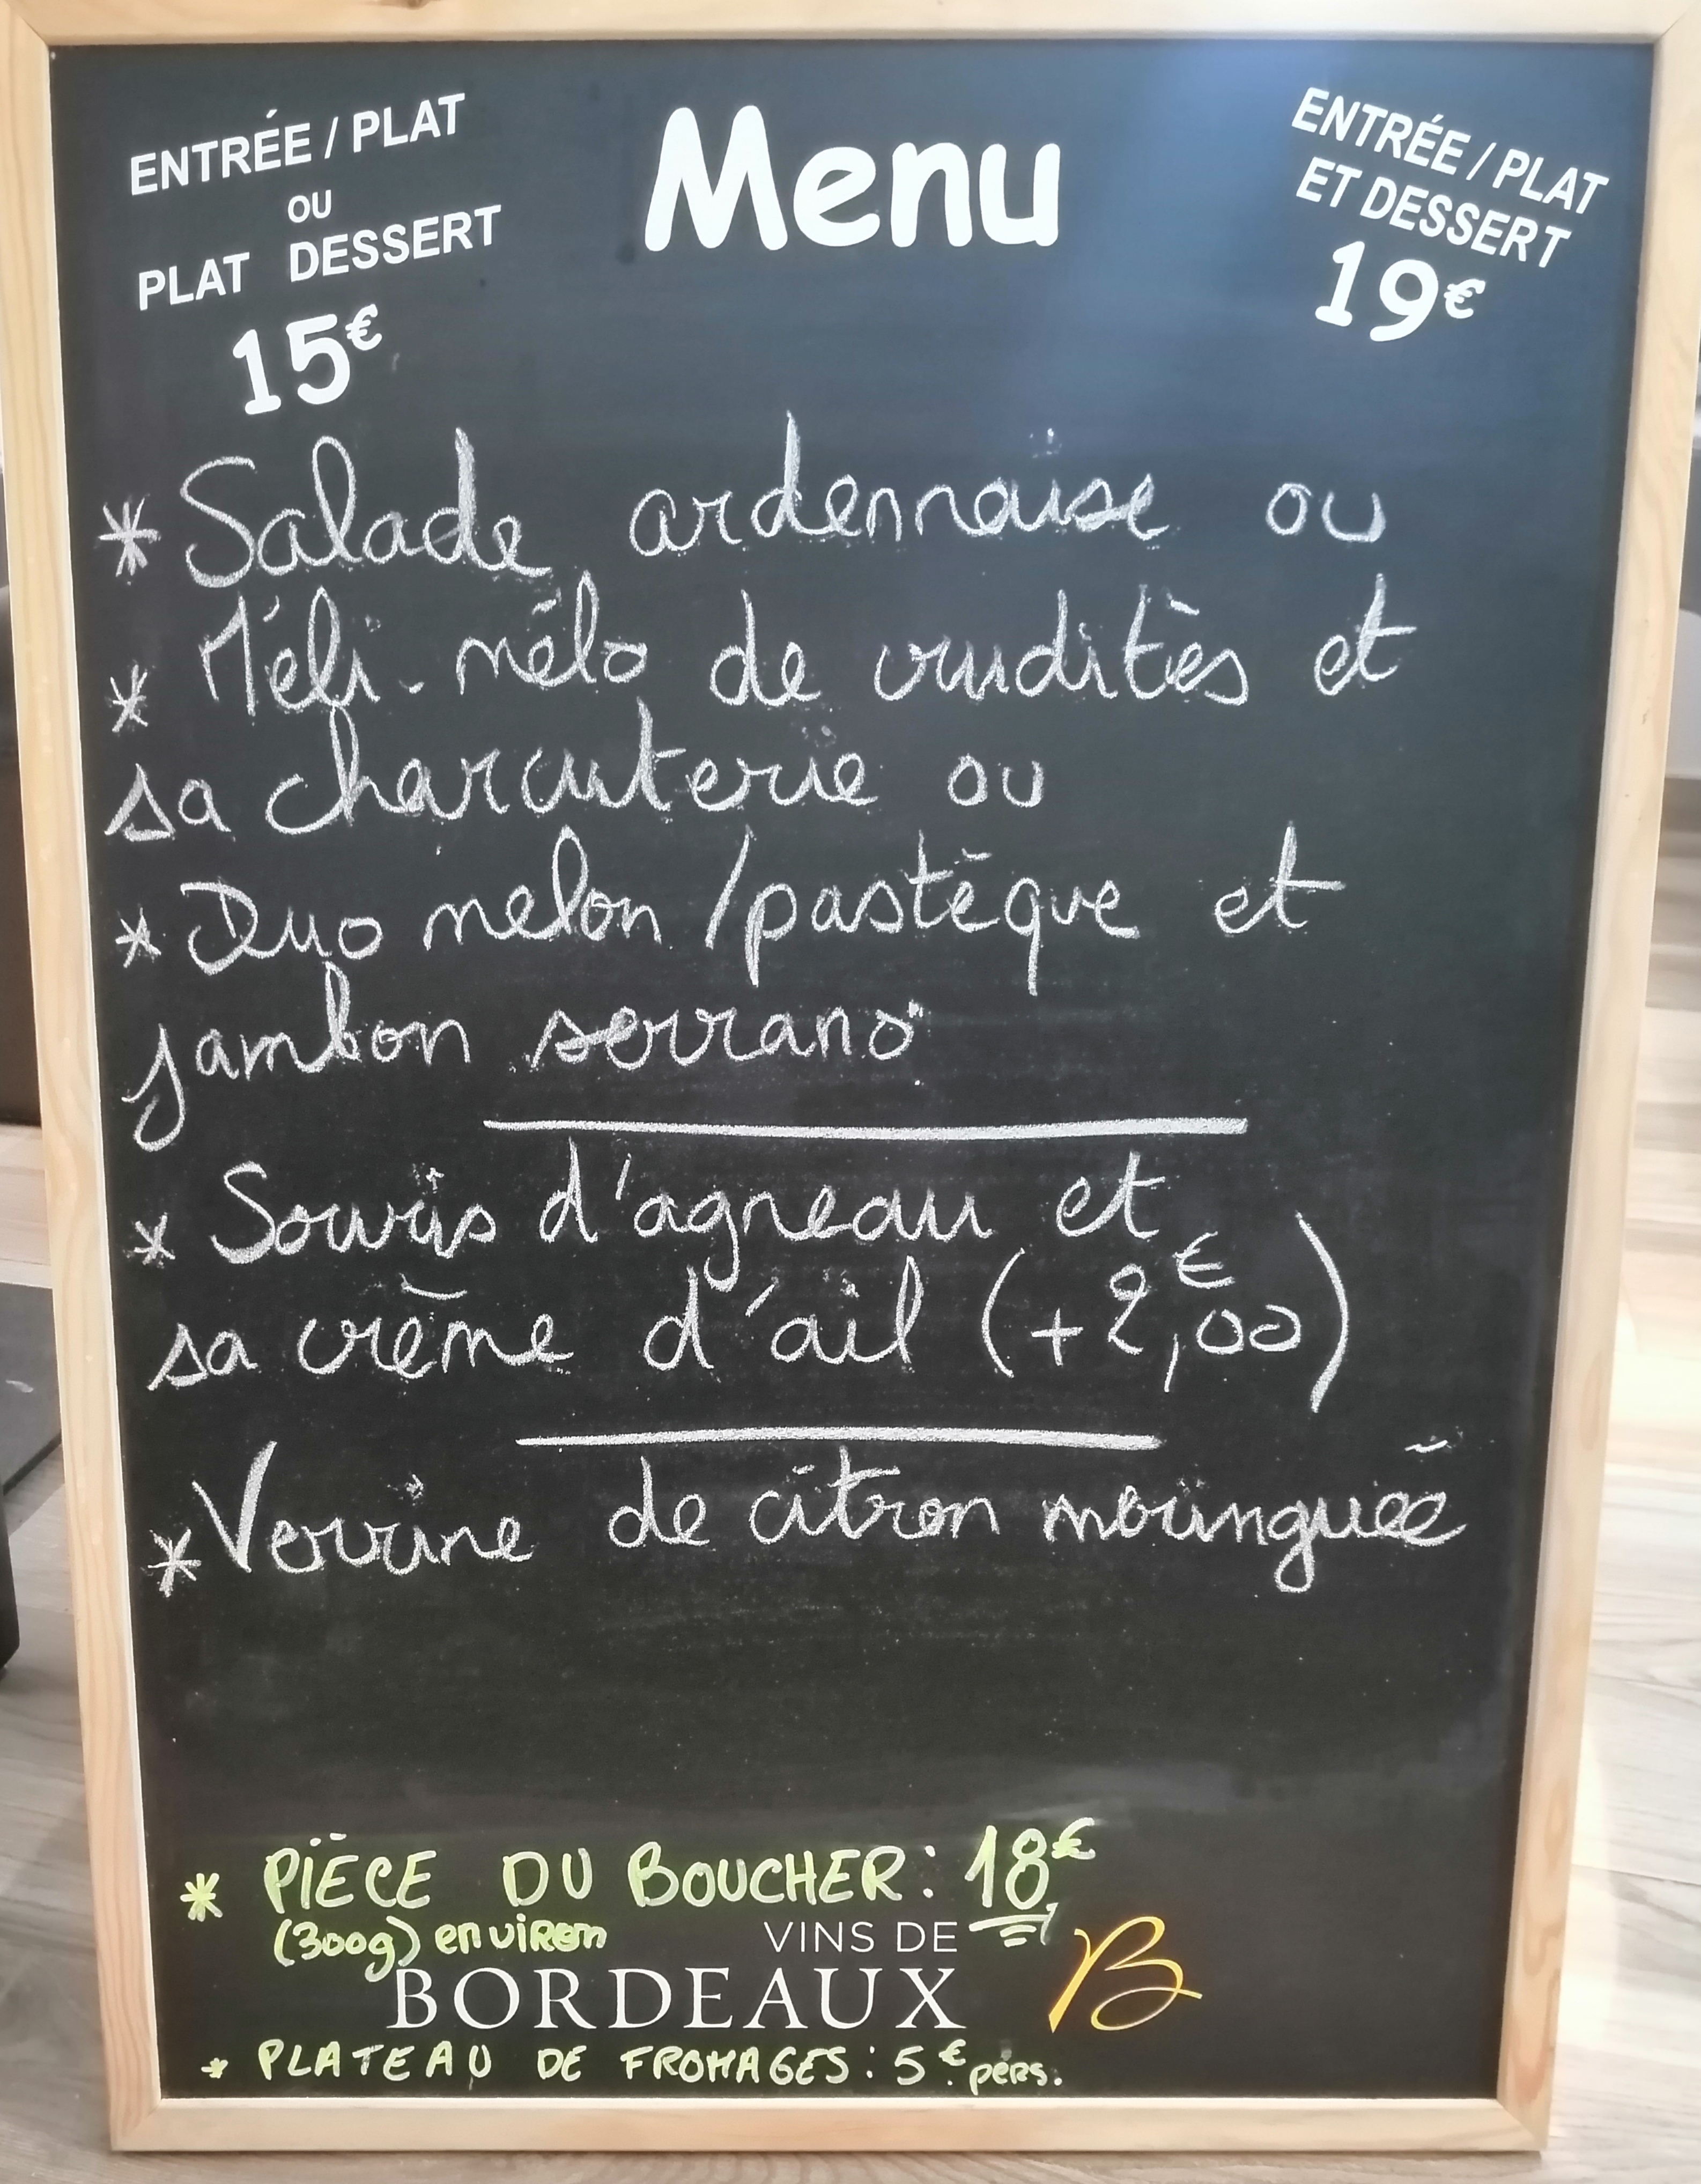 ENTRÉE / PLAT
OU
PLAT DESSERT
15€
Menu
ENTRÉE / PLAT
ET DESSERT
19€
* Salade ardennaise ou
* Méli-mélo de crudités et
sa charcuterie ou
* Duo melon / pastèque et
jambon serrano
* Souris d'agneau et
sa crème d'ail (+2,00€)
* Verrine de citron meringuée
* PIÈCE DU BOUCHER : 18€
(300g) environ
VINS DE
BORDEAUX
B
* PLATEAU DE FROMAGES : 5€ pers.